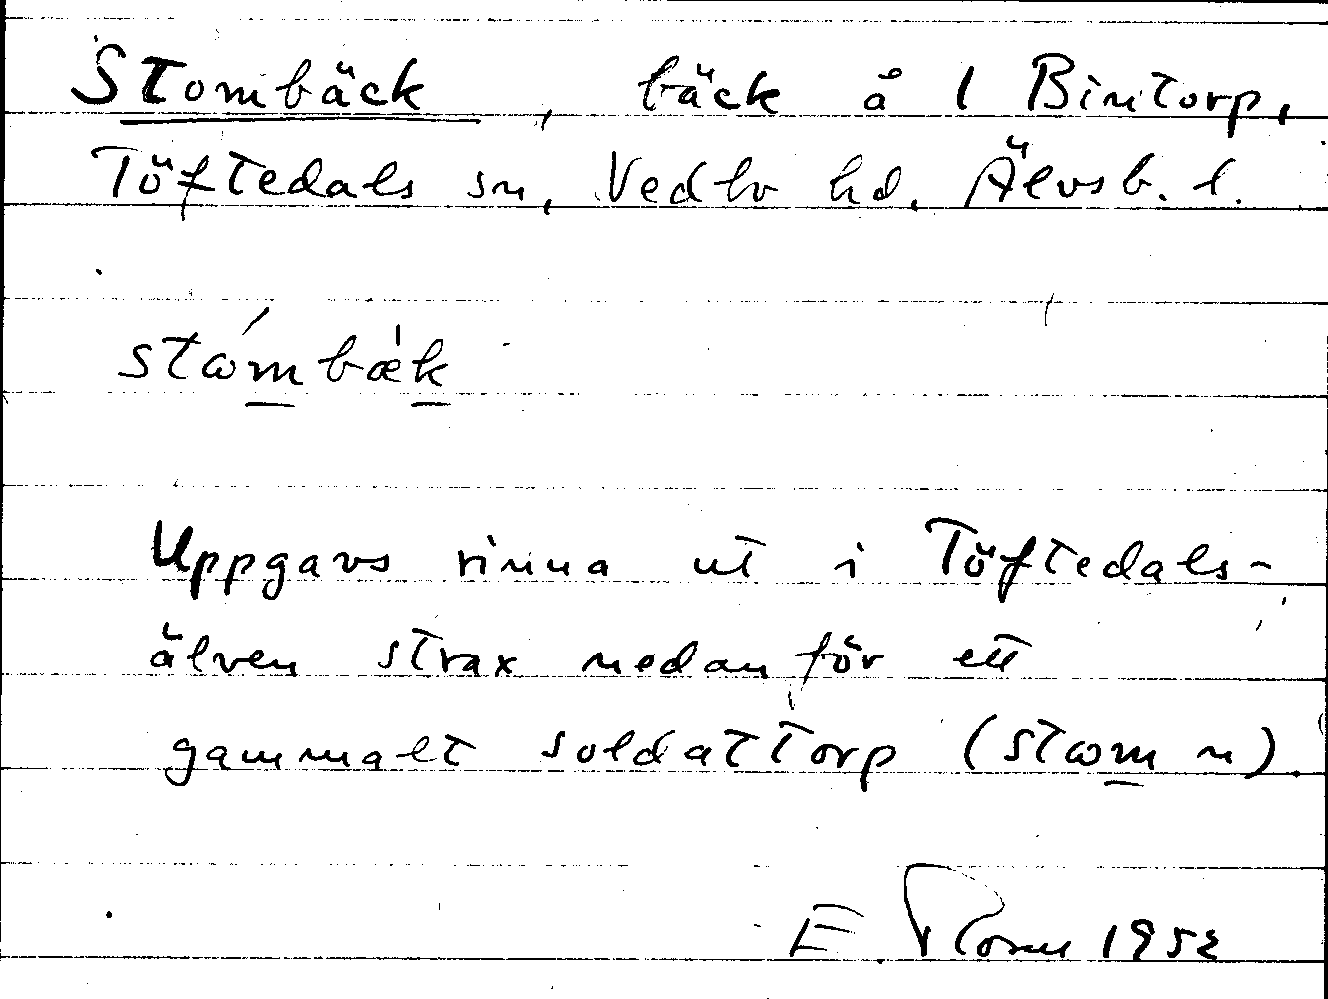 Stombäck, bäck å 1 Bintorp,
Töftedals sn, Vedbo hd. Älvsb. l.
stωmbæk
Uppgavs rinna ut i Töftedals-
älven strax nedanför ett
gammalt soldattorp (stωm n).
E. 1952